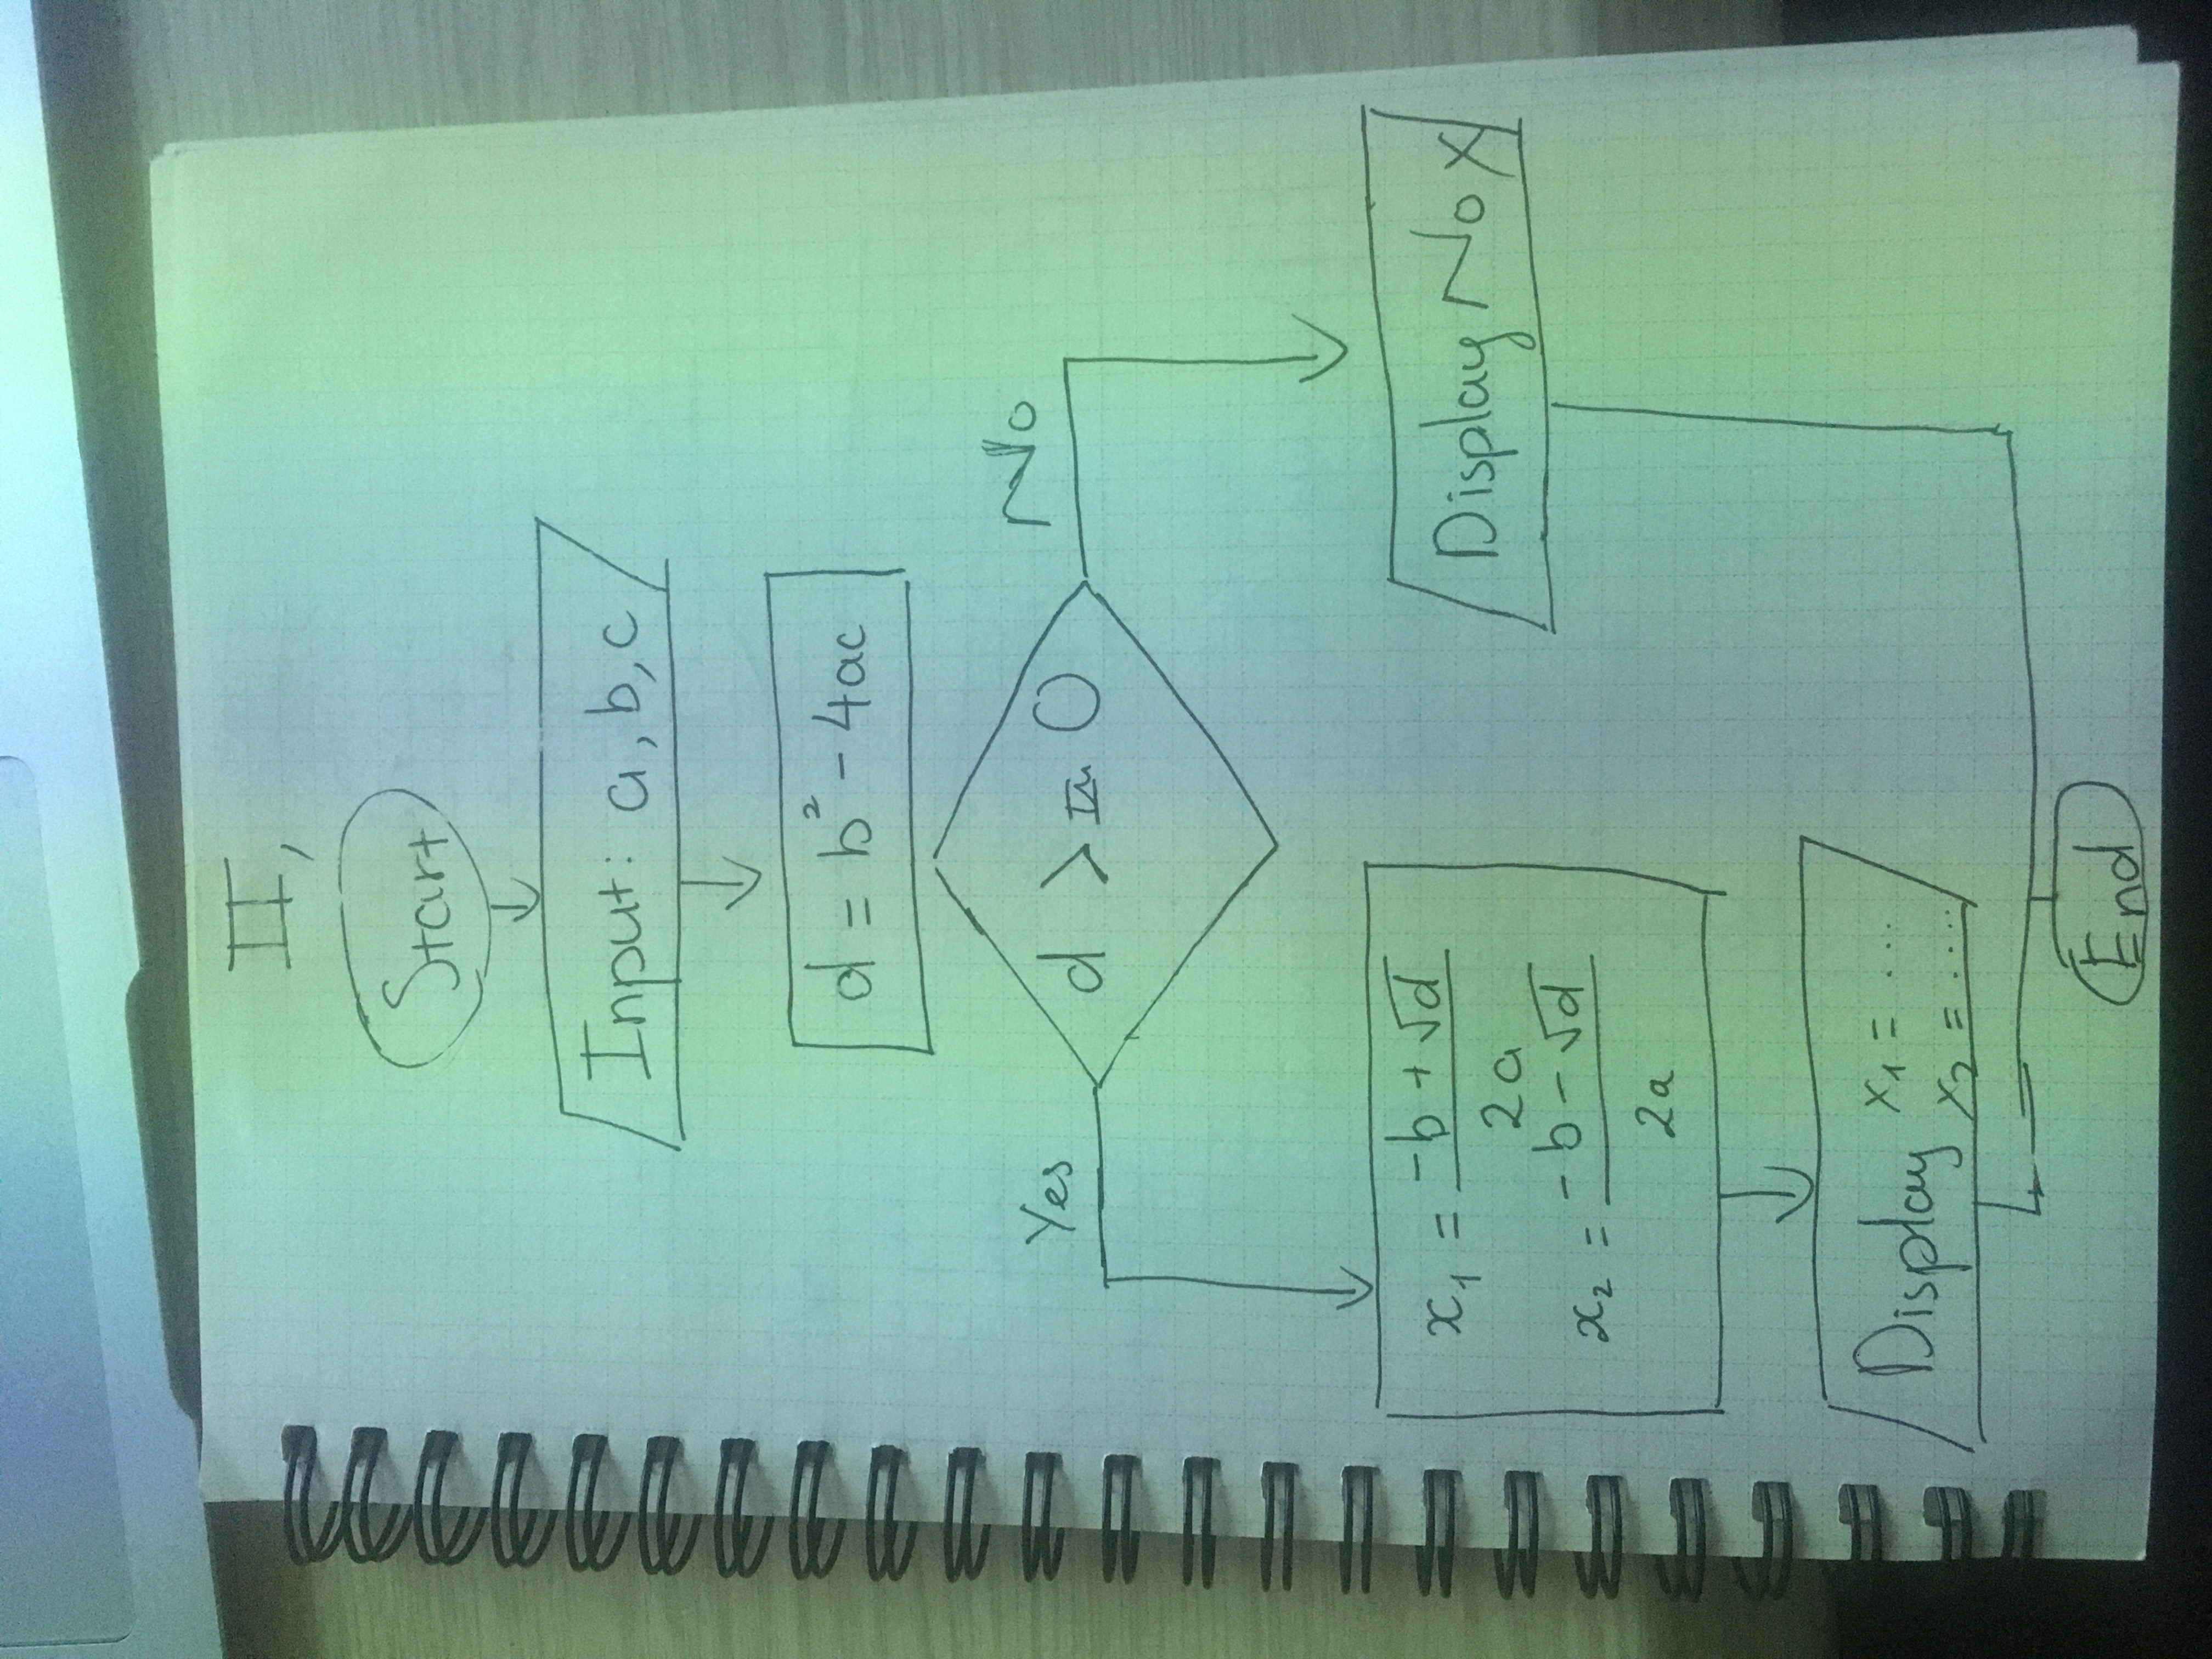 II,
Start
Input: a, b, c
d = b² - 4ac
Yes
d > 0
No
x₁ = -b + √d
2a
x₂ = -b - √d
2a
Display No X
Display x₁ = ...
x₂ = ....
End